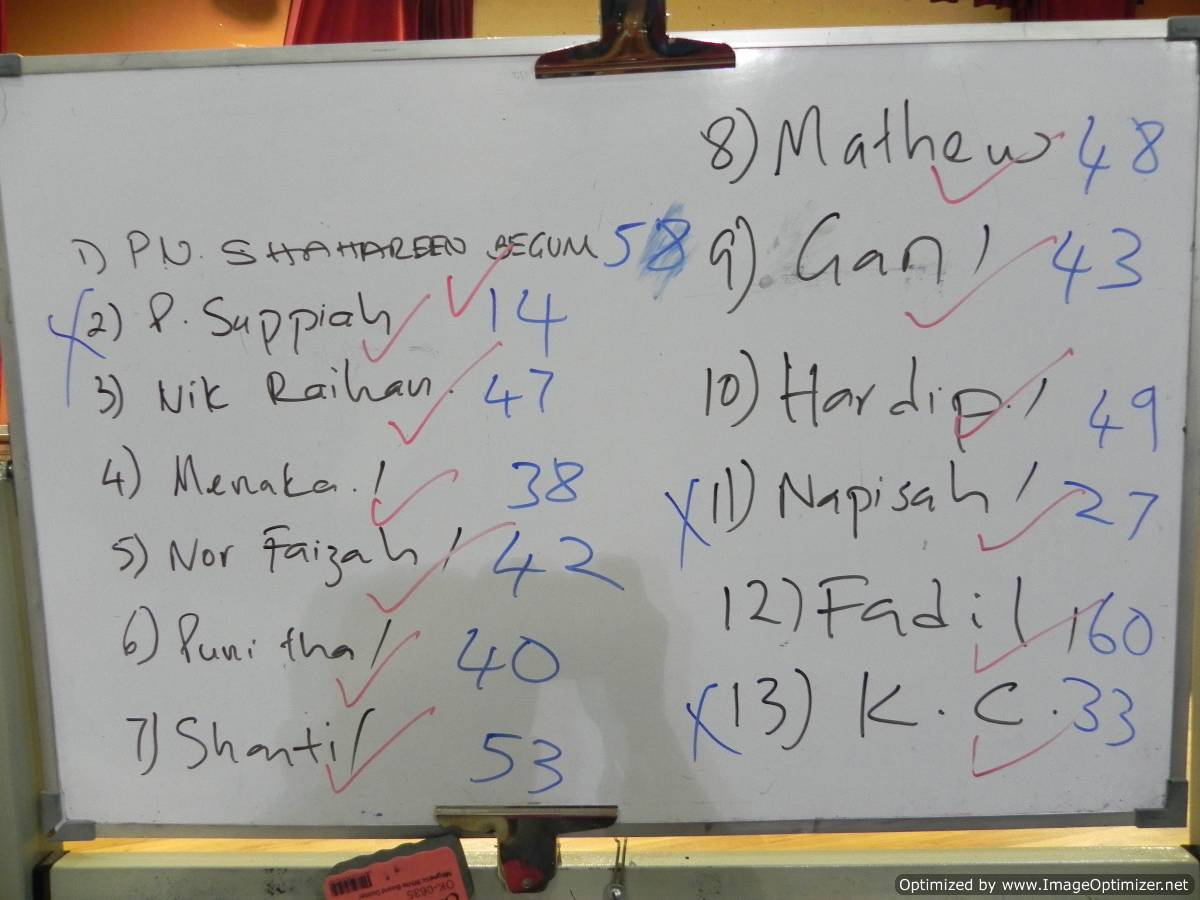 1) PN. SHAHAREEN BEGUM 58
2) P. Suppiah 14
3) Nik Raihan. 47
4) Menaka. / 38
5) Nor Faizah / 42
6) Punitha / 40
7) Shanti / 53
8) Mathew 48
9) Gan / 43
10) Hardip. / 49
11) Napisah / 27
12) Fadil 60
13) K. C. 33
OK-0635
Optimized by www.ImageOptimizer.net